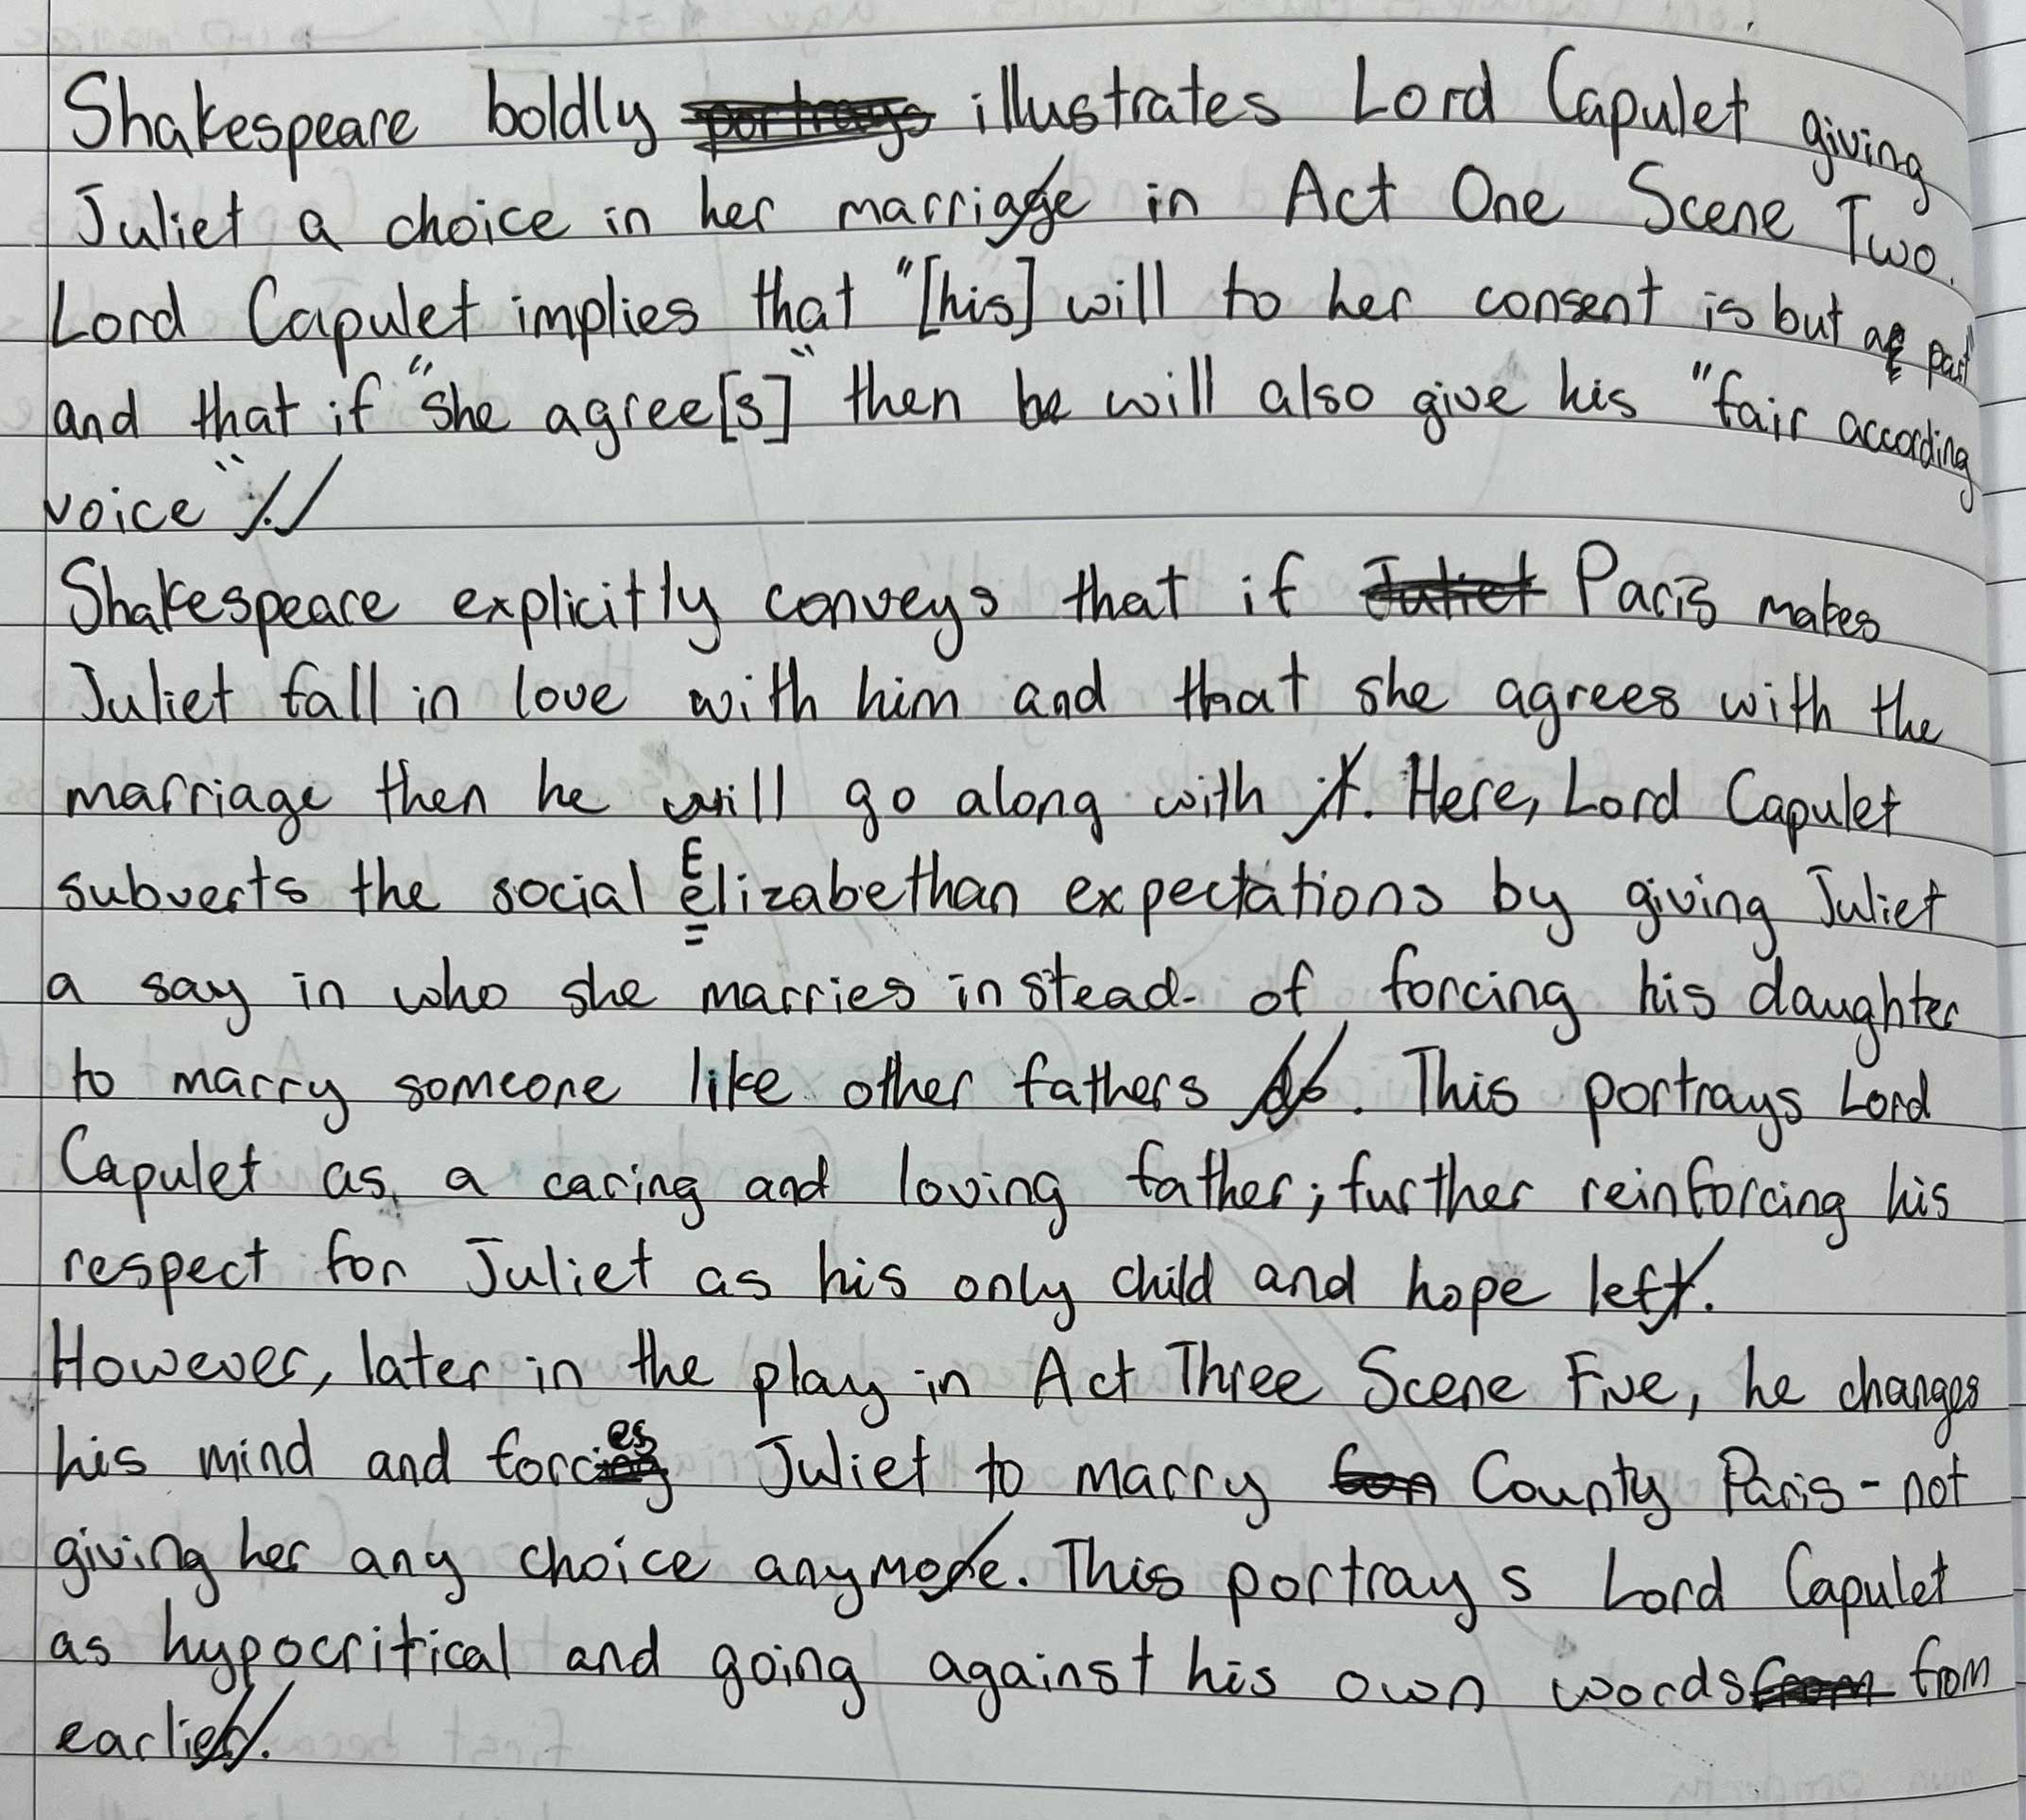 Shakespeare boldly portrays illustrates Lord Capulet giving
Juliet a choice in her marriage in Act One Scene Two.
Lord Capulet implies that "[his] will to her consent is but a part"
and that if "she agree[s]" then he will also give his "fair according
voice".
Shakespeare explicitly conveys that if Juliet Paris makes
Juliet fall in love with him and that she agrees with the
marriage then he will go along with it. Here, Lord Capulet
subverts the social Elizabethan expectations by giving Juliet
a say in who she marries instead of forcing his daughter
to marry someone like other fathers do. This portrays Lord
Capulet as a caring and loving father; further reinforcing his
respect for Juliet as his only child and hope left.
However, later in the play in Act Three Scene Five, he changes
his mind and forces Juliet to marry Con County Paris - not
giving her any choice anymore. This portrays Lord Capulet
as hypocritical and going against his own words from from
earlier.